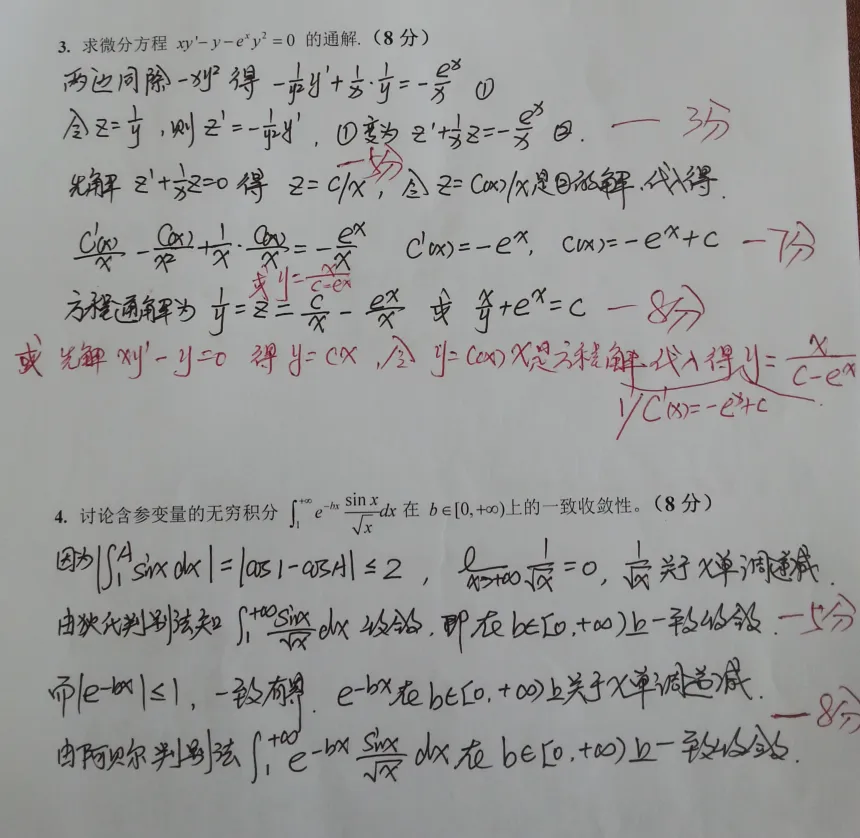 3. 求微分方程 xy′－y－eˣy²＝0 的通解.（8分）
两边同除－xy² 得 －1/y² y′＋1/x·1/y＝－eˣ/x ①
令 z＝1/y, 则 z′＝－1/y² y′, ①变为 z′＋1/x z＝－eˣ/x ②. —3分
先解 z′＋1/x z＝0 得 z＝c/x, —5分 令 z＝C(x)/x是②的解.代入得.
C′(x)/x－C(x)/x²＋1/x·C(x)/x＝－eˣ/x C′(x)＝－eˣ, C(x)＝－eˣ＋c —7分
或 y＝x/(c－eˣ)
方程通解为 1/y＝z＝c/x－eˣ/x 或 x/y＋eˣ＝c —8分
或 先解 xy′－y＝0 得 y＝cx, 令 y＝C(x)x是方程解.代入得 y＝x/(c－eˣ)
1/C′(x)＝－eˣ＋c
4. 讨论含参变量的无穷积分 ∫₁^{+∞} e^{-bx} sin x/√x dx 在 b∈[0,+∞)上的一致收敛性。（8分）
因为|∫₁^A sinx dx|＝|cos1－cosA|≤2, l x→+∞ 1/√x＝0, 1/√x 关于x单调递减.
由狄氏判别法知 ∫₁^{+∞} sinx/√x dx 收敛. 即在 b∈[0,+∞)上一致收敛. —5分
而|e^{-bx}|≤1, 一致有界. e^{-bx}在b∈[0,+∞)上关于x单调递减.
—8分
由阿贝尔判别法 ∫₁^{+∞} e^{-bx} sinx/√x dx 在 b∈[0,+∞)上一致收敛.